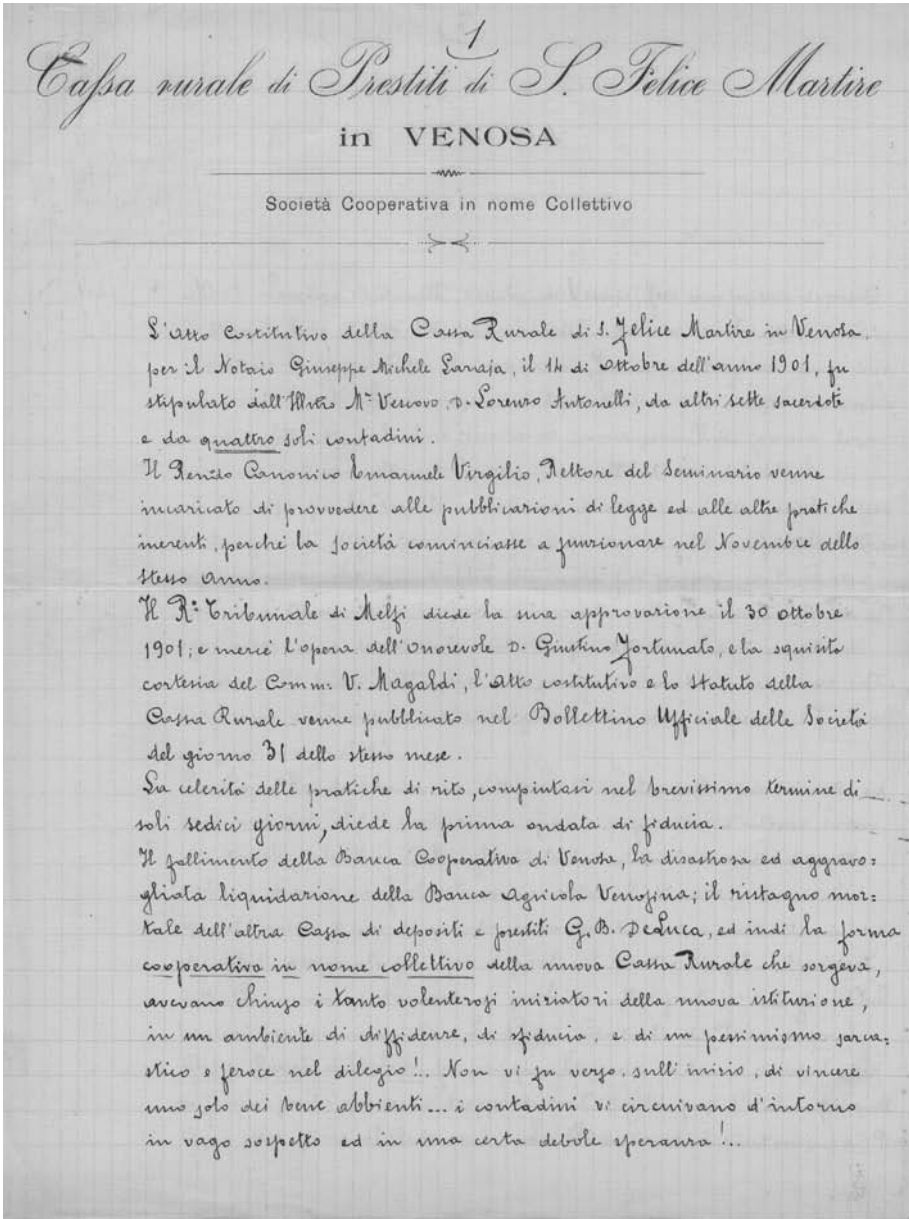 1
Cassa rurale di Prestiti di S. Felice Martire
in VENOSA
Società Cooperativa in nome Collettivo
L'Atto Costitutivo della Cassa Rurale di S. Felice Martire in Venosa,
per il Notaio Giuseppe Michele Laraja, il 14 di Ottobre dell'anno 1901, fu
stipulato dall'Ill.mo Mr. Vescovo, D. Lorenzo Antonelli, da altri sette sacerdoti
e da quattro soli contadini.
Il Rev.do Canonico Emanuele Virgilio, Rettore del Seminario venne
incaricato di provvedere alle pubblicazioni di legge ed alle altre pratiche
inerenti, perché la società cominciasse a funzionare nel Novembre dello
stesso anno.
Il R.º Tribunale di Melfi diede la sua approvazione il 30 ottobre
1901; e mercé l'opera dell'onorevole D. Giustino Fortunato, e la squisita
cortesia del Comm: V. Magaldi, l'Atto costitutivo e lo Statuto della
Cassa Rurale venne pubblicato nel Bollettino Ufficiale delle Società
del giorno 31 dello stesso mese.
La celerità delle pratiche di rito, compiutasi nel brevissimo termine di
soli sedici giorni, diede la prima ondata di fiducia.
Il fallimento della Banca Cooperativa di Venosa, la disastrosa ed aggravo=
gliata liquidazione della Banca Agricola Venosina; il ristagno mor=
tale dell'altra Cassa di depositi e prestiti G. B. DeLuca, ed indi la forma
cooperativa in nome collettivo della nuova Cassa Rurale che sorgeva,
avevano chiuso i tanto volenterosi iniziatori della nuova istituzione,
in un ambiente di diffidenze, di sfiducia, e di un pessimismo sarca=
stico e feroce nel dilegio!.. Non vi fu verso, sull'inizio, di vincere
uno solo dei bene abbienti... i contadini vi circuivano d'intorno
in vago sospetto ed in una certa debole speranza!..